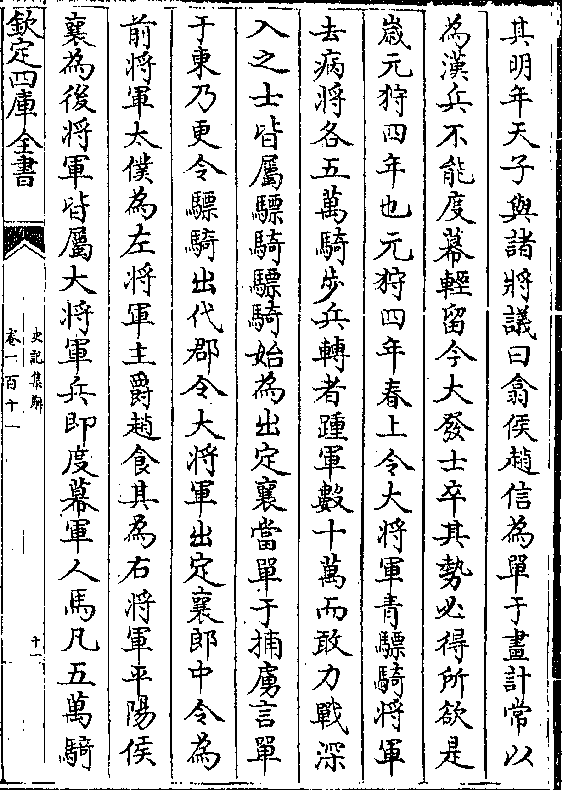 其明年天子與諸將議曰翕侯趙信為單于畫計常以
為漢兵不能度幕輕留今大發士卒其勢必得所欲是
歲元狩四年也元狩四年春上令大將軍青驃騎將軍
去病將各五萬騎步兵轉者踵軍數十萬而敢力戰深
入之士皆屬驃騎驃騎始為出定襄當單于捕虜言單
于東乃更令驃騎出代郡令大將軍出定襄郎中令為
前將軍太僕為左將軍主爵趙食其為右將軍平陽侯
襄為後將軍皆屬大將軍兵即度幕軍人馬凡五萬騎
欽定四庫全書
史記集解
卷一百十一
十一